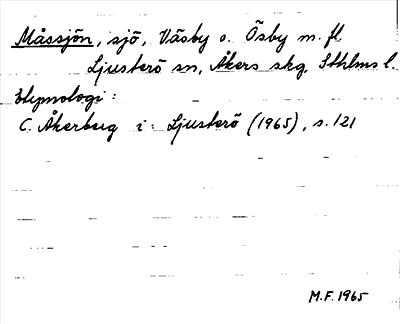 Måssjön, sjö, Väsby o. Ösby m. fl
Ljusterö sn, Åkers skg, Sthlms l.
Etymologi:
C. Åkerberg i: Ljusterö (1965), s. 121
M.F. 1965